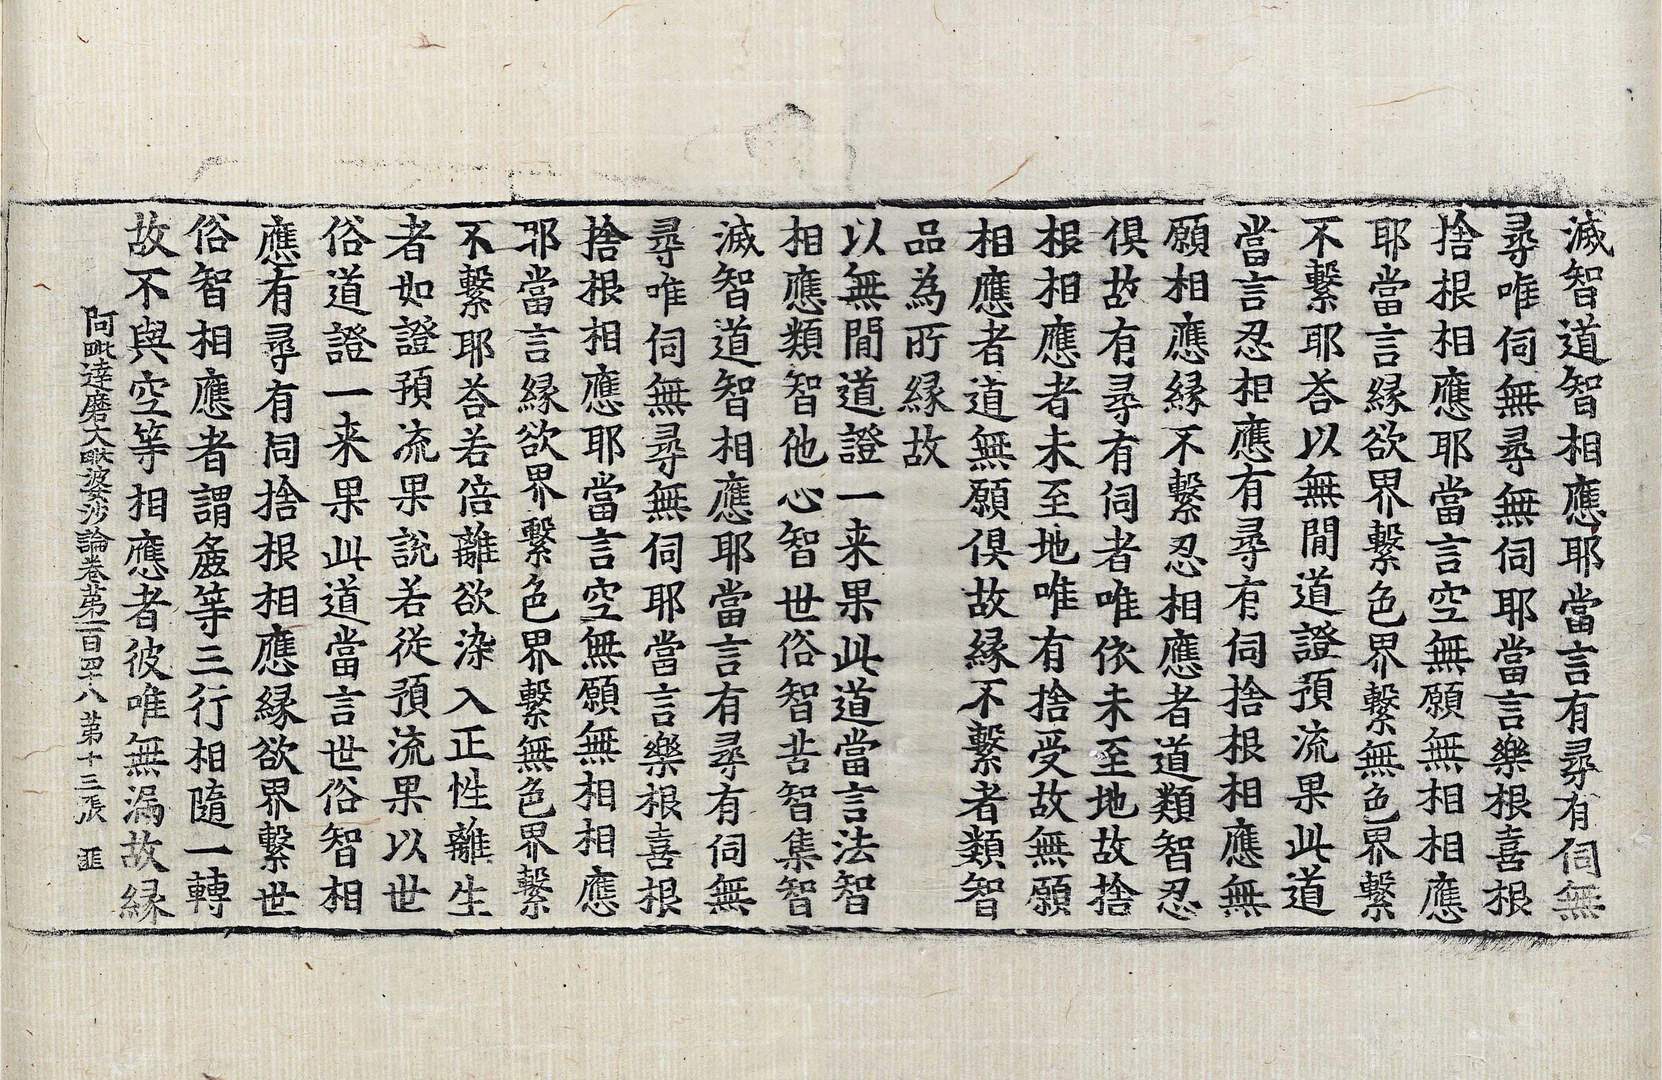 滅智道智相應耶當言有尋有伺無
尋唯伺無尋無伺耶當言樂根喜根
捨根相應耶當言空無願無相相應
耶當言緣欲界繫色界繫無色界繫
不繫耶荅以無間道證預流果此道
當言忍相應有尋有伺捨根相應無
願相應緣不繫忍相應者道類智忍
俱故有尋有伺者唯依未至地故捨
根相應者未至地唯有捨受故無願
相應者道無願俱故緣不繫者類智
品為所緣故
以無間道證一来果此道當言法智
相應類智他心智世俗智苦智集智
滅智道智相應耶當言有尋有伺無
尋唯伺無尋無伺耶當言樂根喜根
捨根相應耶當言空無願無相相應
耶當言緣欲界繫色界繫無色界繫
不繫耶荅若倍離欲染入正性離生
者如證預流果說若從預流果以世
俗道證一来果此道當言世俗智相
應有尋有伺捨根相應緣欲界繫世
俗智相應者謂麁等三行相隨一轉
故不與空等相應者彼唯無漏故緣
阿毗達磨大毗婆沙論卷第一百四十八 第十三張 匪